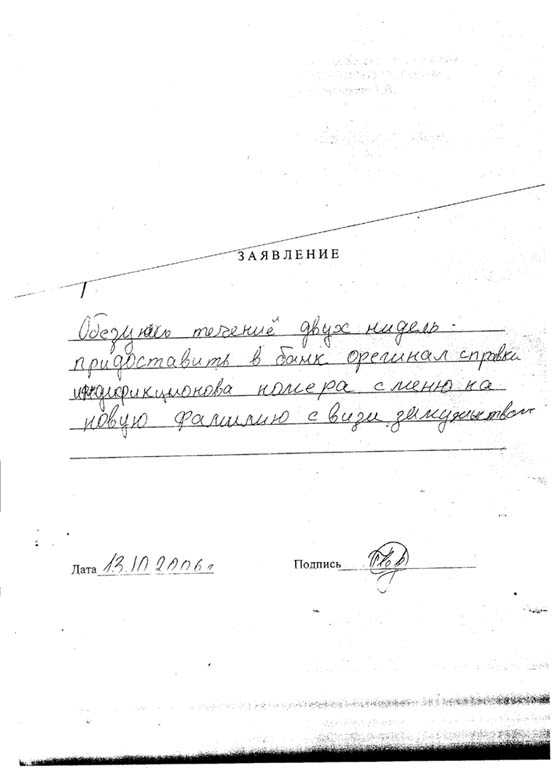 ЗАЯВЛЕНИЕ
Обезуюсь течениё двух нидель
придоставить в банк орегинал справки
индификционова номера смено на
новую фамилию с визи замужеством
Дата 13.10 2006г
Подпись